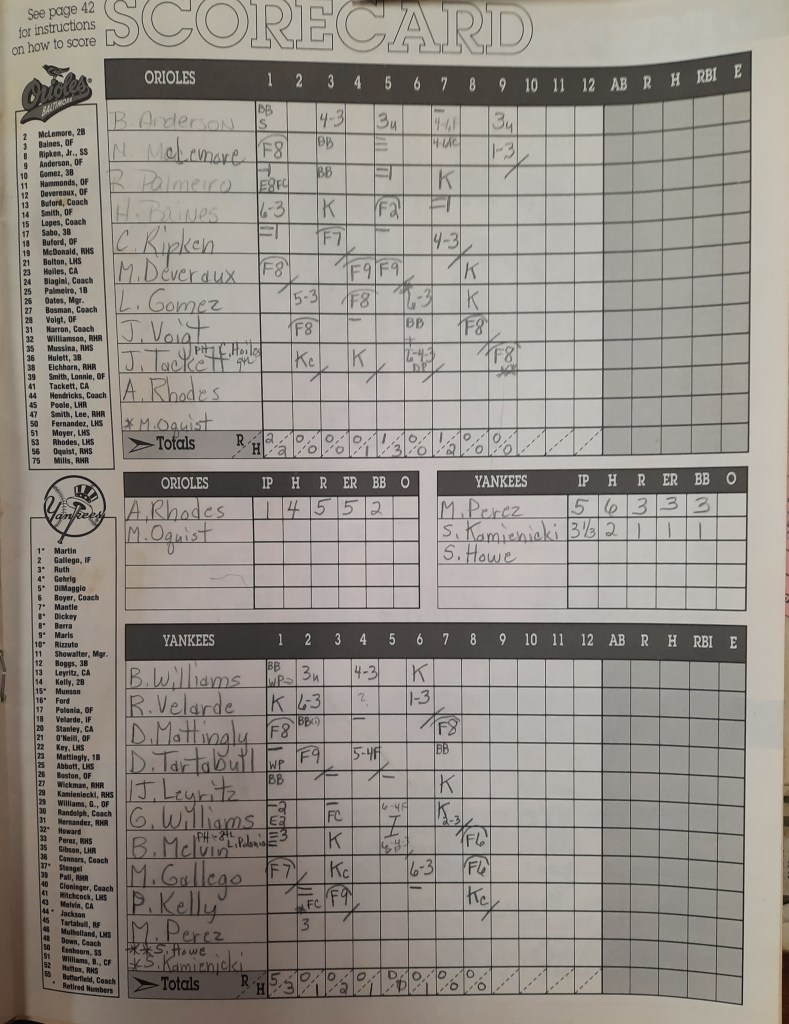 See page 42
for instructions
on how to score
SCORECARD
Orioles
BALTIMORE
ORIOLES 1 2 3 4 5 6 7 8 9 10 11 12 AB R H RBI E
B. Anderson BB S 4-3 3u 3u
N. McLemore F8 BB 1-3
R. Palmeiro E8FC BB =1 K
H. Baines 6-3 K F2 =1
C. Ripken =1 F7 4-3
M. Deveraux F8 F9 F9 K
L. Gomez 5-3 F8 6-3 K
J. Voigt F8 BB F8
J. Tackett PH C. Hoiles Kc K 6-4-3 DP F8
A. Rhodes
* M. Oquist
Totals R H 2/2 0/0 0/0 0/1 1/3 0/0 1/2 0/0 0/0
2 McLemore, 2B
3 Baines, OF
8 Ripken, Jr., SS
9 Anderson, OF
10 Gomez, 3B
11 Hammonds, OF
12 Devereaux, OF
13 Buford, Coach
14 Smith, OF
15 Lopes, Coach
17 Sabo, 3B
18 Buford, OF
19 McDonald, RHS
21 Bolton, LHS
23 Hoiles, CA
24 Biagini, Coach
25 Palmeiro, 1B
26 Oates, Mgr.
27 Bosman, Coach
28 Voigt, OF
31 Narron, Coach
32 Williamson, RHR
35 Mussina, RHS
36 Hulett, 3B
38 Eichhorn, RHR
39 Smith, Lonnie, OF
41 Tackett, CA
44 Hendricks, Coach
45 Poole, LHR
47 Smith, Lee, RHR
50 Fernandez, LHS
51 Moyer, LHS
53 Rhodes, LHS
56 Oquist, RHS
75 Mills, RHR
ORIOLES IP H R ER BB O
A. Rhodes 1 4 5 5 2
M. Oquist
YANKEES IP H R ER BB O
M. Perez 5 6 3 3 3
S. Kamienicki 3 1/3 2 1 1 1
S. Howe
Yankees
1* Martin
2 Gallego, IF
3* Ruth
4* Gehrig
5* DiMaggio
6 Boyer, Coach
7* Mantle
8* Dickey
8* Berra
9* Maris
10* Rizzuto
11 Showalter, Mgr.
12 Boggs, 3B
13 Leyritz, CA
14 Kelly, 2B
15* Munson
16* Ford
17 Polonia, OF
18 Velarde, IF
20 Stanley, CA
21 O'Neill, OF
22 Key, LHS
23 Mattingly, 1B
25 Abbott, LHS
26 Boston, OF
27 Wickman, RHR
28 Kamieniecki, RHS
29 Williams, G., OF
30 Randolph, Coach
31 Hernandez, RHR
32* Howard
33 Perez, RHS
35 Gibson, LHR
36 Connors, Coach
37* Stengel
39 Pall, RHR
40 Cloninger, Coach
41 Hitchcock, LHS
43 Melvin, CA
44* Jackson
45 Tartabull, RF
46 Mulholland, LHS
48 Down, Coach
50 Eenhoorn, SS
51 Williams, B., CF
52 Hutton, RHS
55 Butterfield, Coach
* Retired Numbers
YANKEES 1 2 3 4 5 6 7 8 9 10 11 12 AB R H RBI E
B. Williams BB WP 3u 4-3 K
R. Velarde K 6-3 ? 1-3
D. Mattingly F8 BB(1) F8
D. Tartabull WP F9 5-4F BB
J. Leyritz BB K
G. Williams E2 FC K 2-3
B. Melvin PH L. Polonia 3 K F6
M. Gallego F7 Kc 6-3 F6
P. Kelly FC F9 Kc
M. Perez 3
** S. Howe
* S. Kamienicki
Totals R H 5/3 0/1 0/2 0/1 0/1 0/1 0/0 0/0